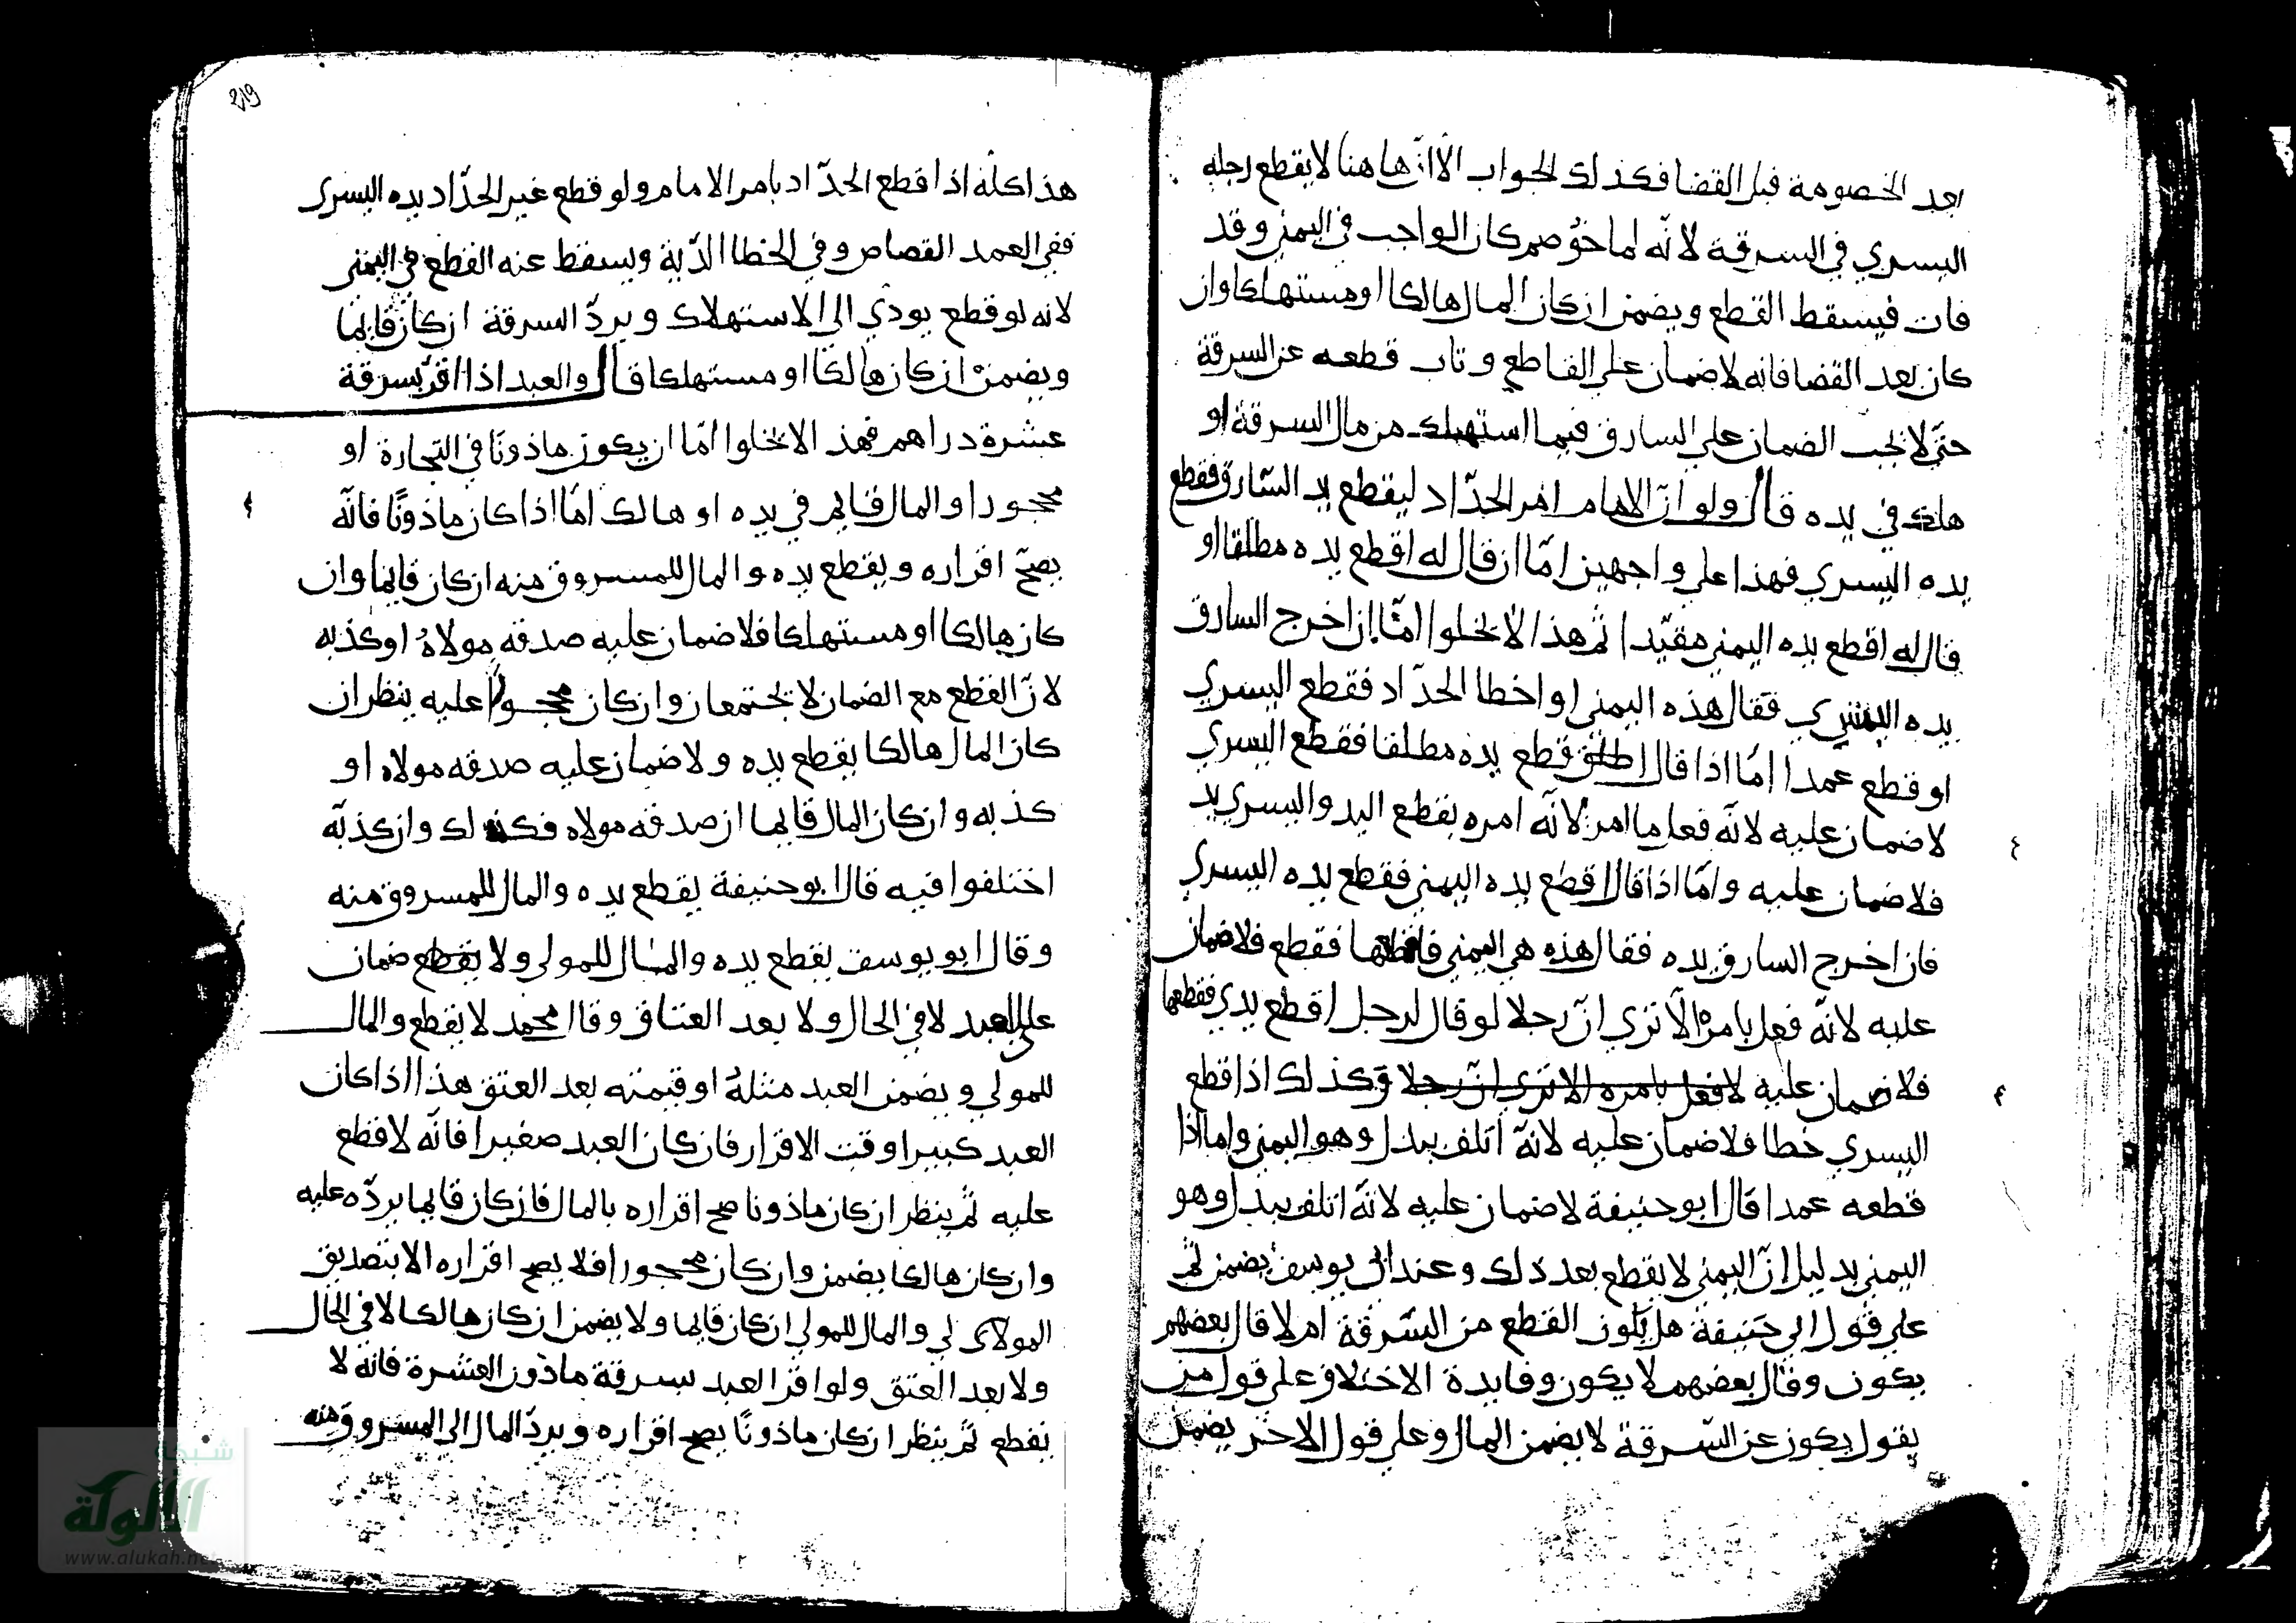 بعد الخصومة قبل القضا فكذلك الجواب الا انّ هاهنا لا يقطع رجله
اليسري في السرقة لانّه لما خوصم كان الواجب في اليمني وقد
فات فيسقط القطع ويضمن ان كان المال هالكا او مستهلكا وان
كان بعد القضا فانه لا ضمان علي القاطع وتاب قطعه عن السرقة
حتّي لا يجب الضمان علي السارق فيما استهلك من مال السرقة او
هلك في يده قال ولو انّ الامام امر الحدّاد ليقطع يد السّارق فقطع
يده اليسري فهذا علي واجهين امّا ان قال له اقطع يده مطلقا او
قال له اقطع يده اليمني مقيّدا ثم هذا لا يخلوا امّا ان اخرج السارق
يده اليسري فقال هذه اليمني او اخطا الحدّاد فقطع اليسري
او قطع عمدا امّا اذا قال قطع يده مطلقا فقطع اليسري
لا ضمان عليه لانّه فعل ما امر لانّه امره بقطع اليد واليسري يد
فلا ضمان عليه وامّا اذا قال اقطع يده اليمني فقطع يده اليسري
فان اخرج السارق يده فقال هذه هي اليمني فاقطعها فقطع فلا ضمان
عليه لانّه فعل بامره الا تري انّ رجلا لو قال لرجل اقطع يدي فقطعها
فلا ضمان عليه لافعل بامره الا تري ان رجلا وكذلك اذا قطع
اليسري خطا فلا ضمان عليه لانّه اتلف ببدل وهو اليمني واما اذا
قطعه عمدا قال ابو حنيفة لا ضمان عليه لانّه اتلف ببدل وهو
اليمني بدليل انّ اليمني لا يقطع بعد ذلك وعند ابي يوسف يضمن ثم
علي قول ابي حنيفة هل يكون القطع من السّرقة ام لا قال بعضهم
يكون وقال بعضهم لا يكون وفايدة الاختلاف علي قول من
يقول يكون عن السّرقة لا يضمن المال وعلي قول الاخر يضمن
219
هذا كله اذا قطع الحدّاد بامر الامام ولو قطع غير الحدّاد يده اليسري
ففي العمد القصاص وفي الخطا الدّية ويسقط عنه القطع في اليمني
لانه لو قطع يودي الي الاستهلاك ويردّ السرقة ان كان قايما
ويضمن ان كان هالكا او مستهلكا قال والعبد اذا اقرّ بسرقة
عشرة دراهم فهذ الا يخلوا امّا ان يكون ماذونا في التجارة او
محجورا والمال قايم في يده او هالك امّا اذا كان ماذونًا فانّه
يصحّ اقراره ويقطع يده والمال للمسروق منه ان كان قايما وان
كان هالكا او مستهلكا فلا ضمان عليه صدقه مولاهُ او كذبه
لانّ القطع مع الضمان لا يجتمعان وان كان محجورا عليه ينظر ان
كان المال هالكا يقطع يده ولا ضمان عليه صدقه مولاه او
كذبه وان كان المال قايما ان صدقه مولاه فكذلك وان كذّبه
اختلفوا فيه قال ابو حنيفة يقطع يده والمال للمسروق منه
وقال ابو يوسف يقطع يده والمال للمولي ولا يقطع ضمان
علي العبد لا في الحال ولا بعد العتاق وقال محمد لا يقطع والمال
للمولي ويضمن العبد مثله او قيمته بعد العتق هذا اذا كان
العبد كبيرا وقت الاقرار فان كان العبد صغيرا فانّه لا قطع
عليه ثم ينظر ان كان ماذونا صح اقراره بالمال فان كان قايما يردّه عليه
وان كان هالكا يضمن وان كان محجورا فلا يصح اقراره الا بتصديق
المولاي لي والمال للمولي ان كان قايما ولا يضمن ان كان هالكا لا في الحال
ولا بعد العتق ولو اقرّ العبد بسرقة ما دون العشرة فانّه لا
يقطع ثم ينظر ان كان ماذونًا يصح اقراره ويردّ المال الي المسروق منه
شبكة
الألوكة
www.alukah.net